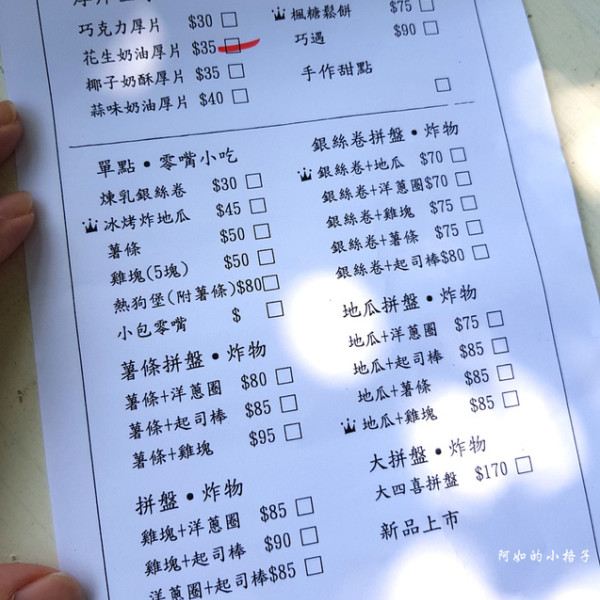 巧克力厚片 $30 □
花生奶油厚片 $35 □
椰子奶酥厚片 $35 □
蒜味奶油厚片 $40 □
楓糖鬆餅 $75 □
巧遇 $90 □
手作甜點
□
單點•零嘴小吃
煉乳銀絲卷 $30 □
冰烤炸地瓜 $45 □
薯條 $50 □
雞塊(5塊) $50 □
熱狗堡(附薯條)$80□
小包零嘴 $ □
薯條拼盤•炸物
薯條+洋蔥圈 $80 □
薯條+起司棒 $85 □
薯條+雞塊 $95 □
拼盤•炸物
雞塊+洋蔥圈 $85 □
雞塊+起司棒 $90 □
洋蔥圈+起司棒$85 □
銀絲卷拼盤•炸物
銀絲卷+地瓜 $70 □
銀絲卷+洋蔥圈$70 □
銀絲卷+雞塊 $75 □
銀絲卷+薯條 $75 □
銀絲卷+起司棒$80 □
地瓜拼盤•炸物
地瓜+洋蔥圈 $75 □
地瓜+起司棒 $85 □
地瓜+薯條 $85 □
地瓜+雞塊 $85 □
大拼盤•炸物
大四喜拼盤 $170 □
新品上市
阿如的小格子